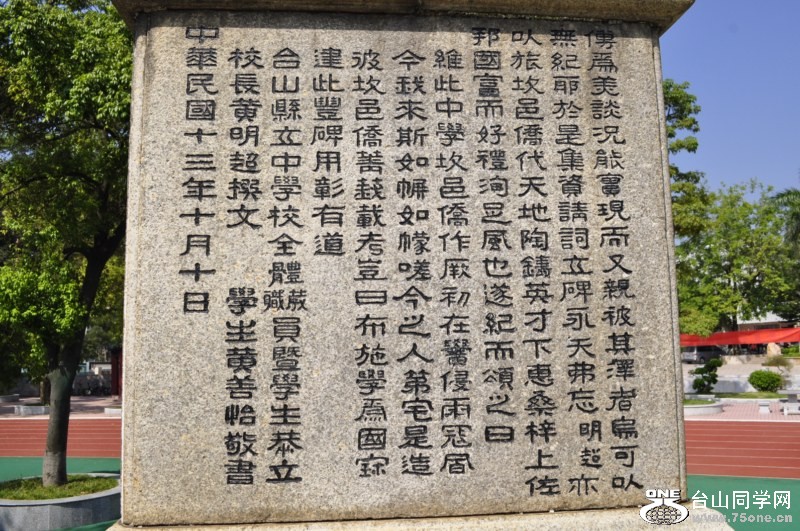 傳為美談況能實現而又親被其澤者烏可以
無紀耶於是集資請詞立碑永矢弗忘明超亦
以旅坎邑僑代天地陶鑄英才下惠桑梓上佐
邦國富而好禮洵足風也遂紀而頌之曰
維此中學坎邑僑作厥初在黌侵雨
今我來斯如帡如幪嗟今之人第宅是造
彼坎邑僑菁莪載考豈曰布施學為國寶
建此豐碑用彰有道
台山縣立中學校全體職員暨學生恭立
校長黃明超撰文　學生黃善怡敬書
中華民國十三年十月十日
ONE 台山同学网
www.75one.cn